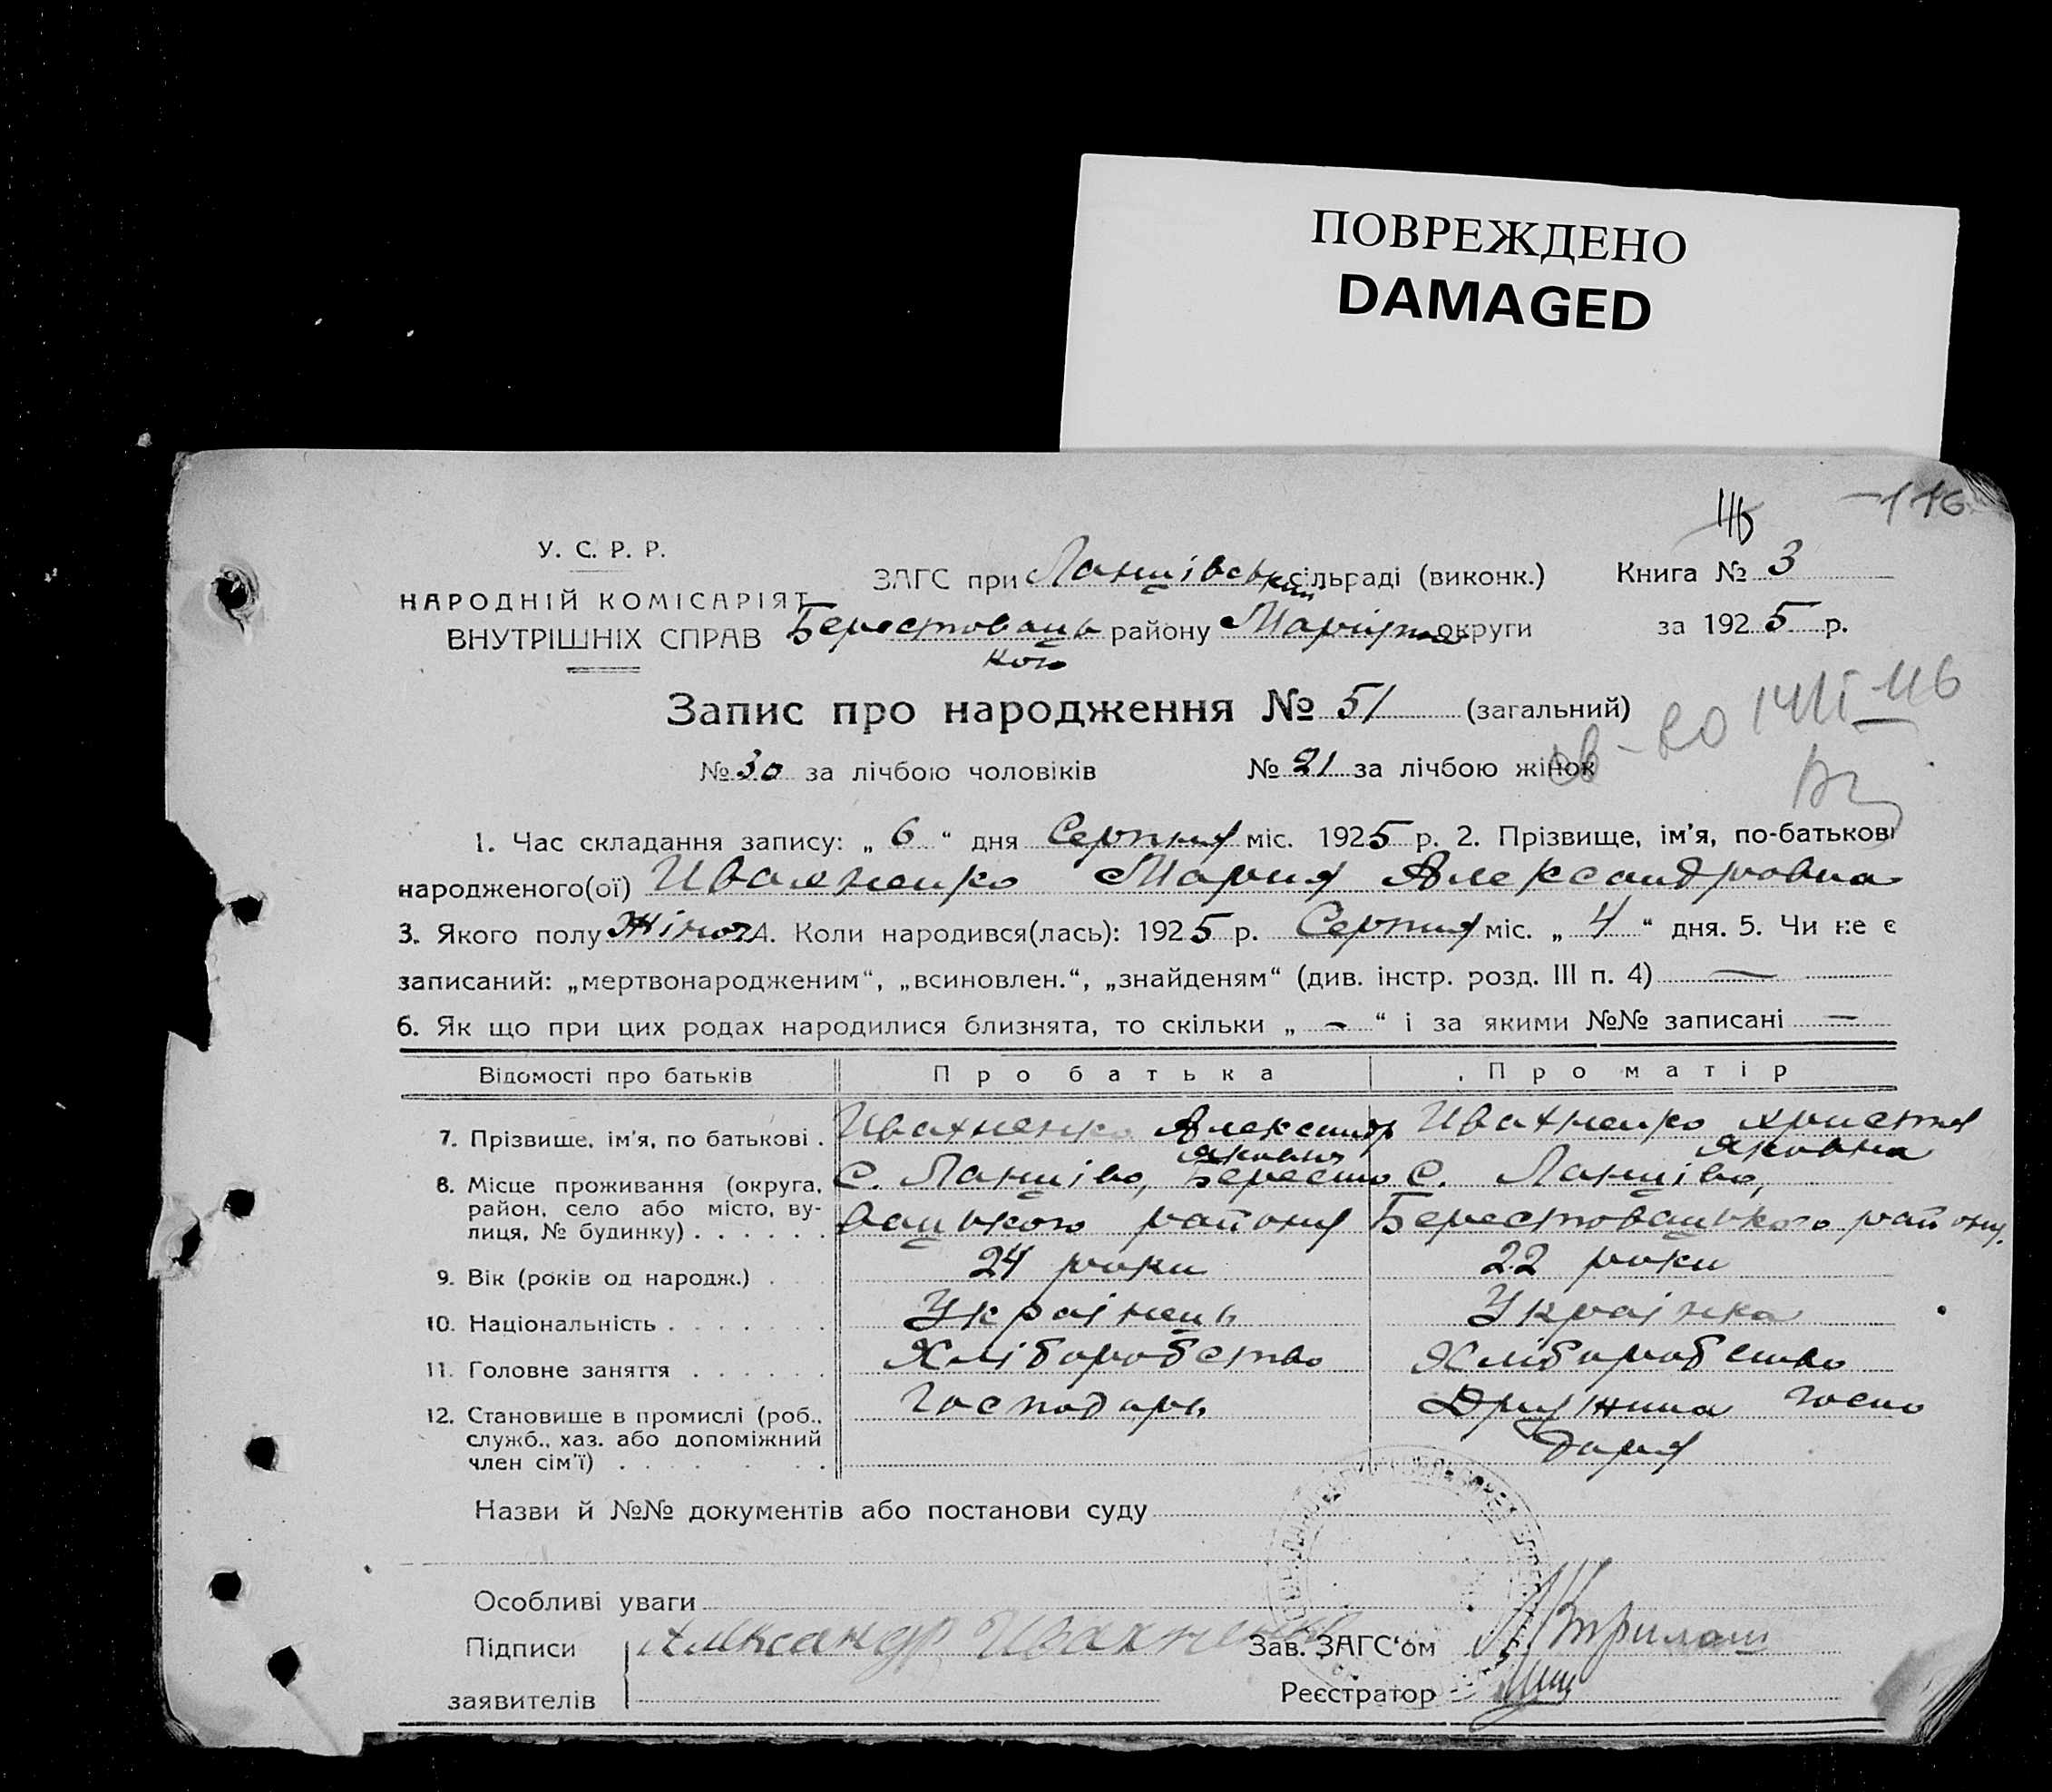 ПОВРЕЖДЕНО
DAMAGED
116
У. С. Р. Р.
НАРОДНІЙ КОМІСАРІЯТ
ВНУТРІШНІХ СПРАВ
ЗАГС при Ланцівській сільраді (виконк.) Книга № 3
Берестовецького району Маріуп. округи за 1925 р.
Запис про народження № 51 (загальний)
116
№ 30 за лічбою чоловіків № 21 за лічбою жінок
1. Час складання запису: „ 6 “ дня Серпня міс. 1925 р. 2. Прізвище, ім’я, по-батькові
народженого(ої) Ивахненко Мария Александровна
3. Якого полу Жіноч. 4. Коли народився(лась): 1925 р. Серпня міс. „ 4 “ дня. 5. Чи не є
записаний: „мертвонародженим“, „всиновлен.“, „знайденям“ (див. інстр. розд. III п. 4) —
6. Як що при цих родах народилися близнята, то скільки „ – “ і за якими №№ записані —
Відомості про батьків Про батька Про матір
7. Прізвище, ім’я, по батькові . Ивахненко Александр Яковлев Ивахненко Христя Яковна
8. Місце проживання (округа, район, село або місто, вулиця, № будинку) . . . . . . С. Ланціво, Берестовацького району С. Ланціво, Берестовацького району.
9. Вік (років од народж.) . . 24 роки 22 роки
10. Національність . . . . . . . Українець Українка
11. Головне заняття . . . . . . Хліборобство Хліборобство
12. Становище в промислі (роб., служб., хаз. або допоміжний член сім’ї) . . . . . . . . Господарь Дружина господаря
Назви й №№ документів або постанови суду
Особливі уваги
Підписи заявителів Александр Ивахненко
Зав. ЗАГС‘ом
Реєстратор